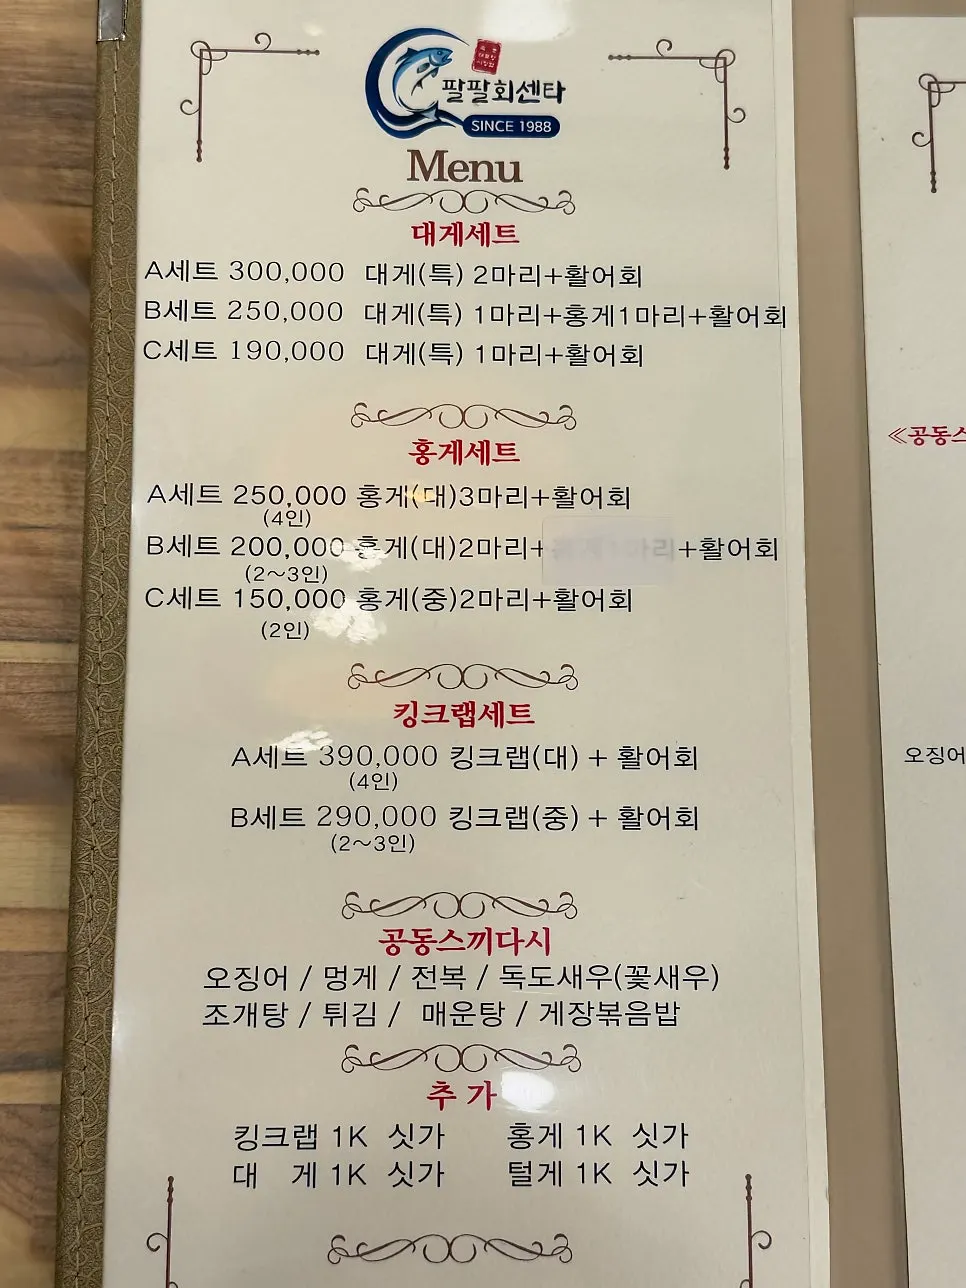 팔팔회센타
SINCE 1988
Menu
대게세트
A세트 300,000 대게(특) 2마리+활어회
B세트 250,000 대게(특) 1마리+홍게1마리+활어회
C세트 190,000 대게(특) 1마리+활어회
홍게세트
A세트 250,000 홍게(대)3마리+활어회
(4인)
B세트 200,000 홍게(대)2마리+ +활어회
(2~3인)
C세트 150,000 홍게(중)2마리+활어회
(2인)
킹크랩세트
A세트 390,000 킹크랩(대) + 활어회
(4인)
B세트 290,000 킹크랩(중) + 활어회
(2~3인)
공동스끼다시
오징어 / 멍게 / 전복 / 독도새우(꽃새우)
조개탕 / 튀김 / 매운탕 / 게장볶음밥
추 가
킹크랩 1K 싯가 홍게 1K 싯가
대 게 1K 싯가 털게 1K 싯가
≪공동스
오징어